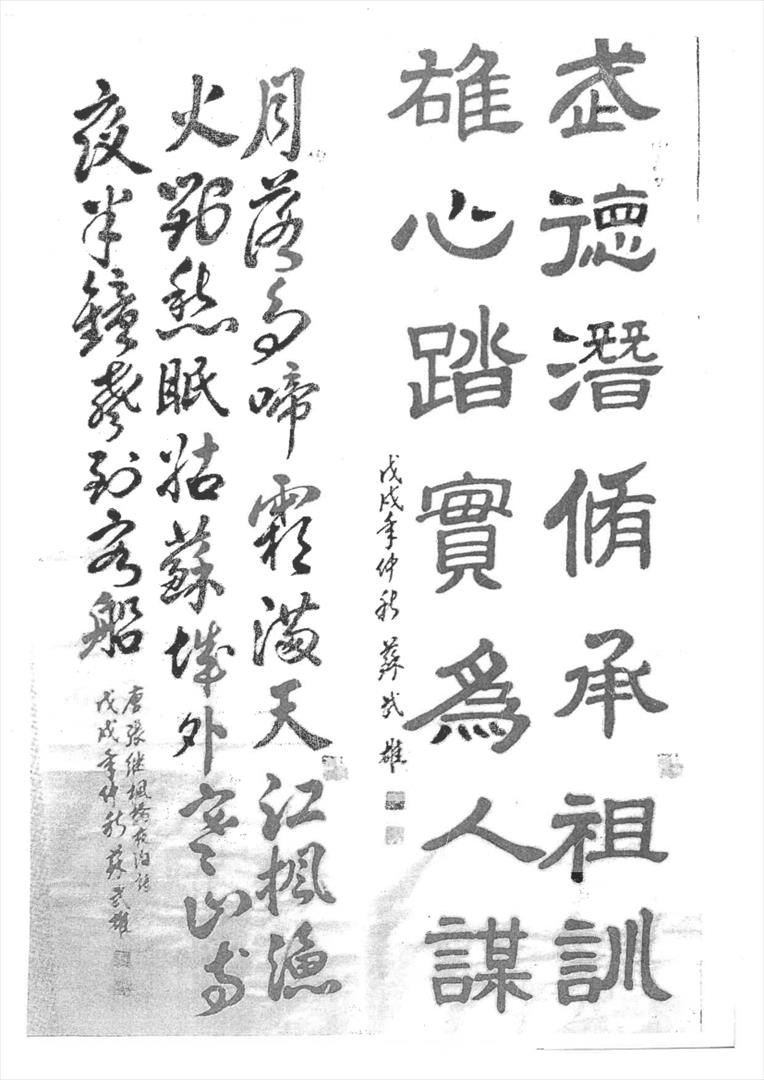 武德潛脩承祖訓
雄心踏實爲人謀
戊戌年仲秋 蘇武雄
月落烏啼霜滿天江楓漁
火對愁眠姑蘇城外寒山寺
夜半鐘聲到客船
唐張继楓橋夜泊詩
戊戌年仲秋 蘇武雄